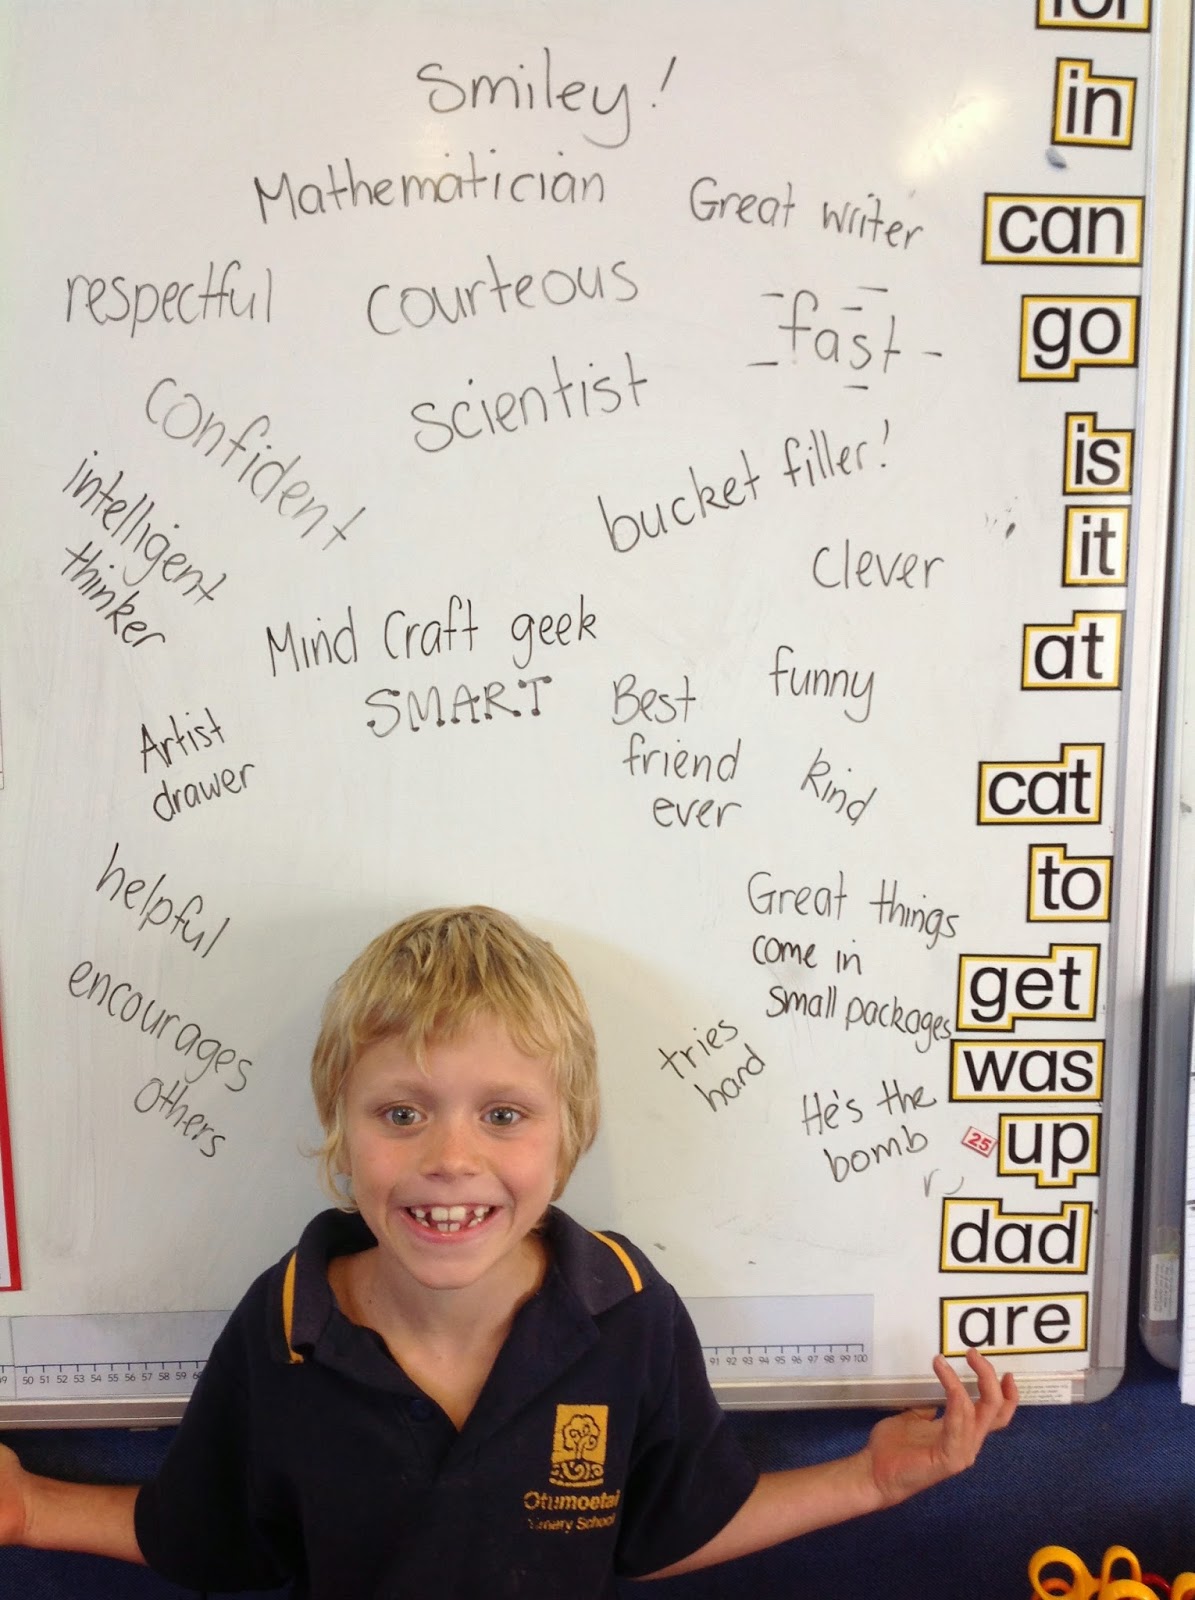 for
in
can
go
is
it
at
cat
to
get
was
up
dad
are
Smiley!
Mathematician
Great writer
respectful
courteous
fast
confident
scientist
bucket filler!
intelligent
thinker
clever
Mind Craft geek
SMART
Best
friend
ever
funny
kind
Artist
drawer
helpful
encourages
others
Great things
come in
small packages
tries
hard
He's the
bomb
25
50 51 52 53 54 55 56 57 58 59
91 92 93 94 95 96 97 98 99 100
Otumoetai
School